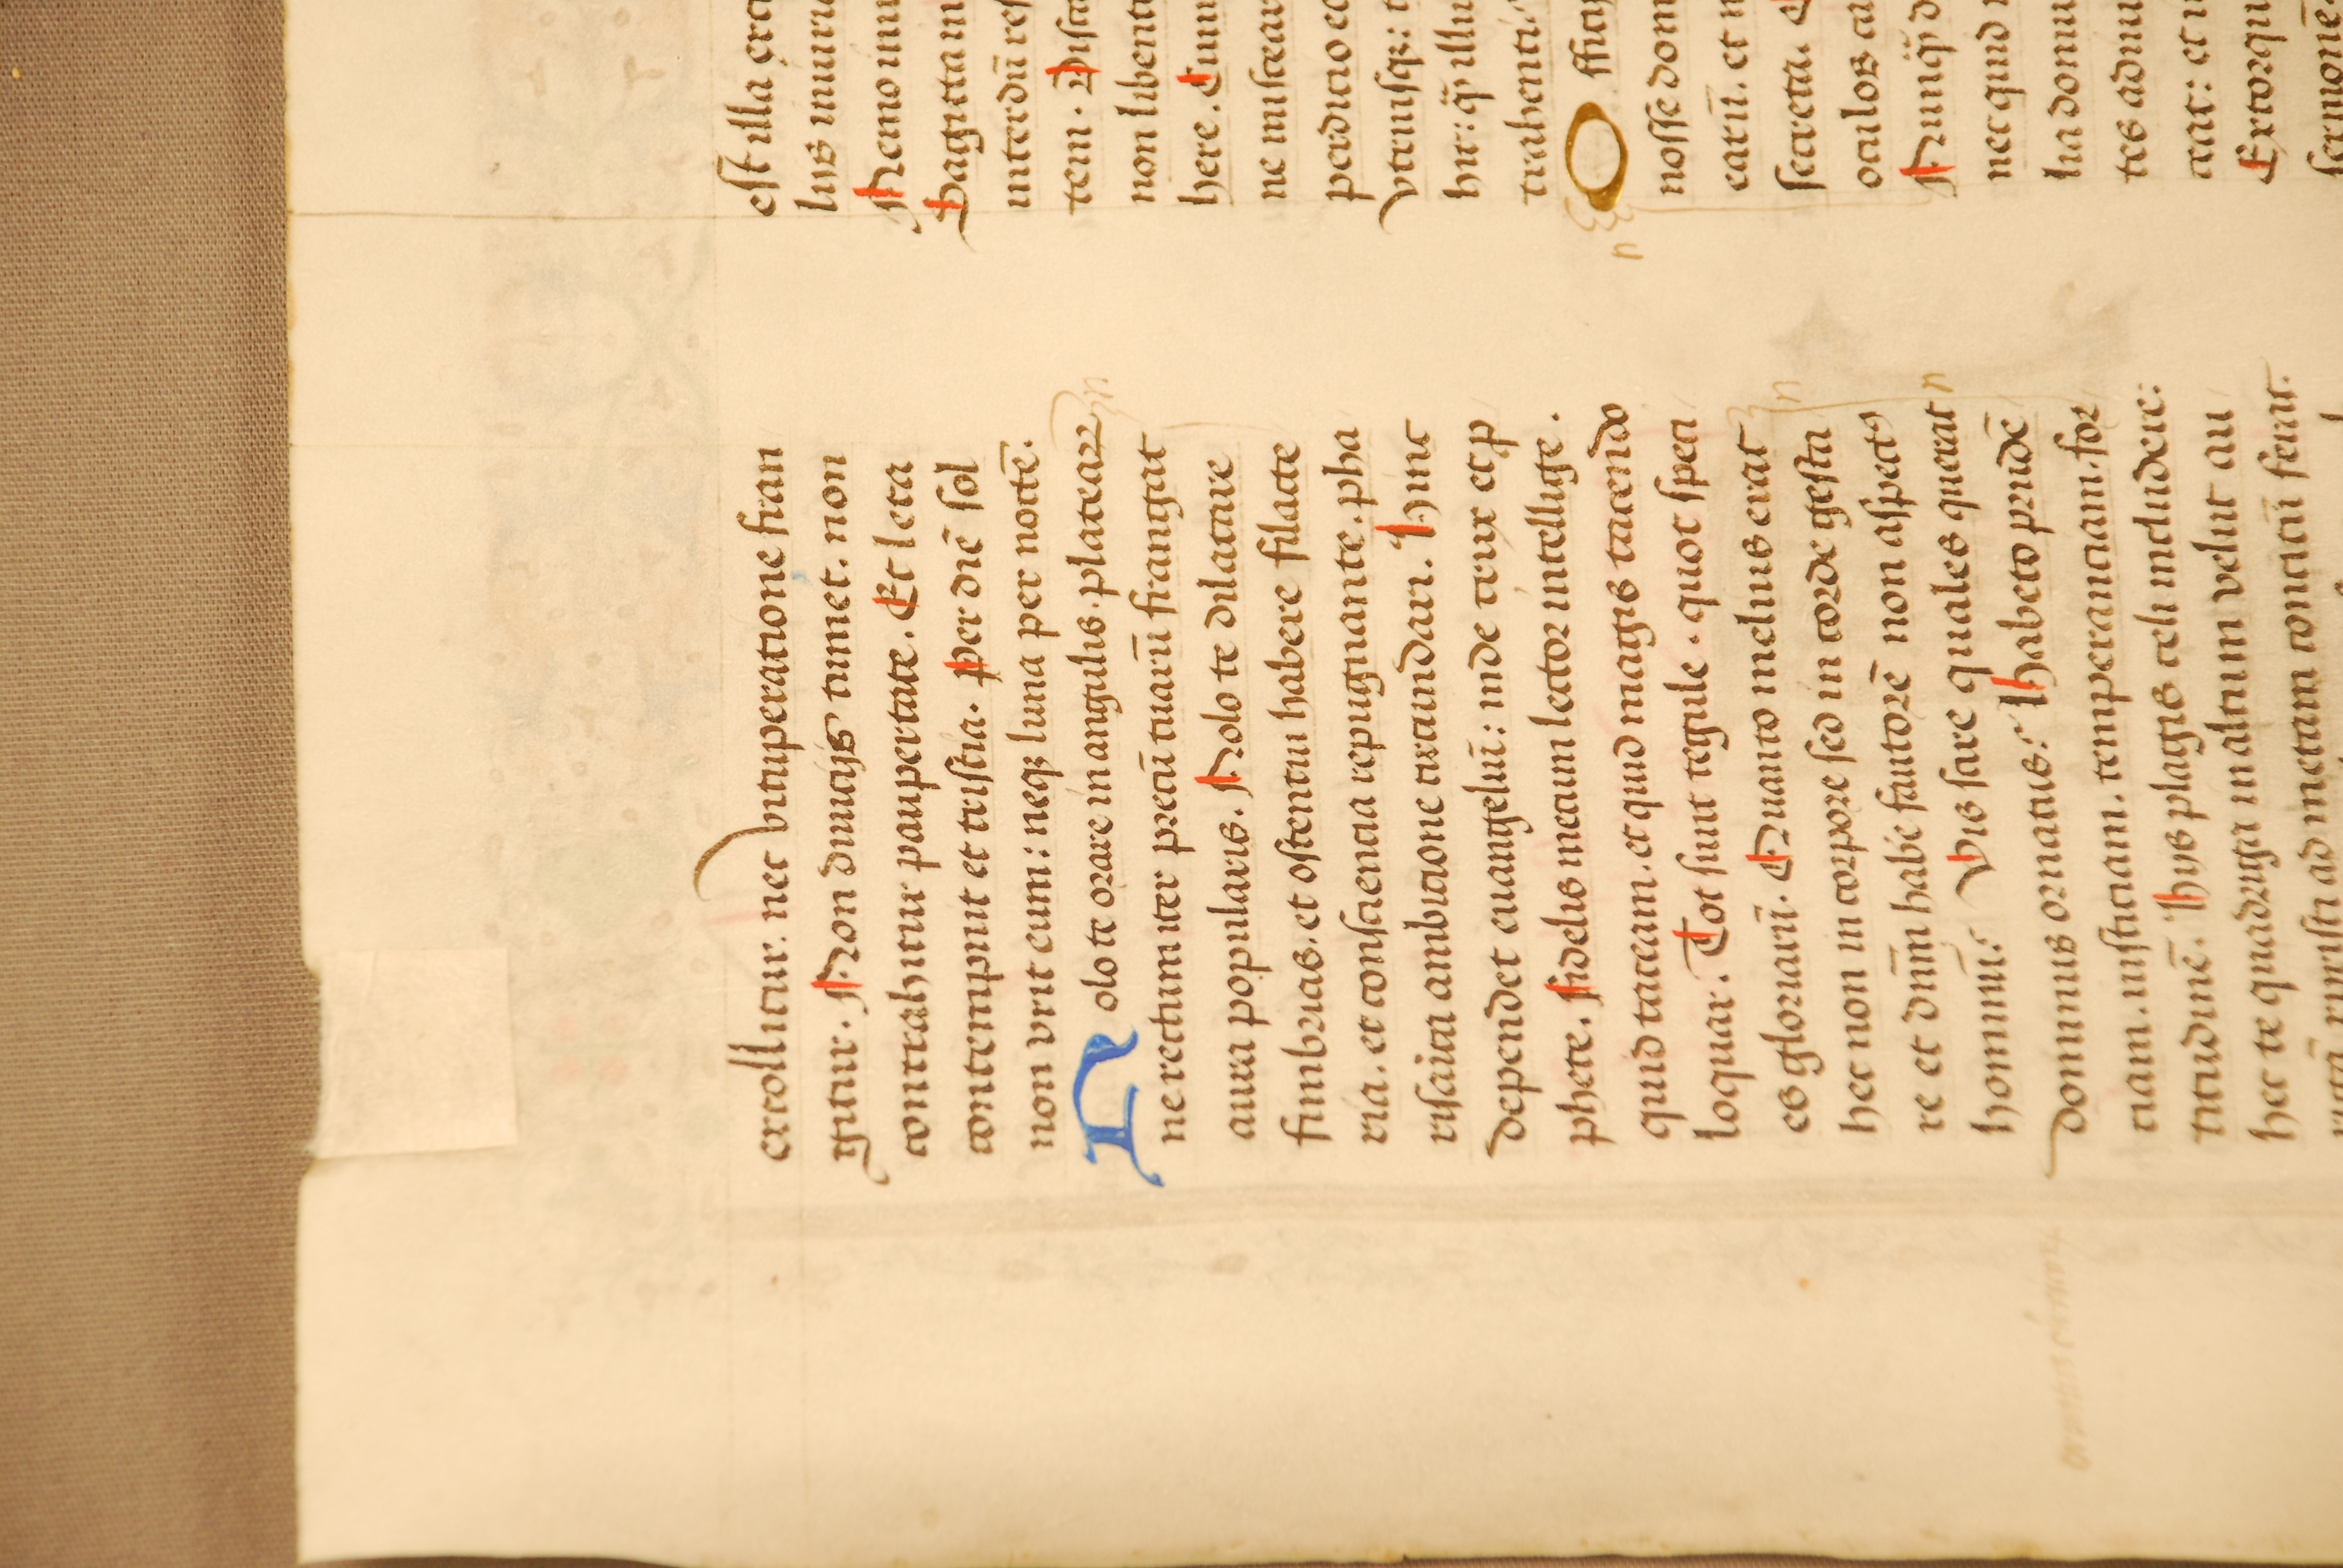 extollitur. nec vituperatione fran
gitur. Non diuicijs tumet. non
contrahitur paupertate. Et leta
contempnit et tristia. Per diē sol
non vrit eum: neqꝫ luna per noctē.
Nolo te orare in angulis. plateaꝝ
ne rectum iter precū tuarū frangat
aura popularis. Nolo te dilatare
fimbrias. et ostentui habere filacte
ria. et consciencia repugnante. pha
risaica ambicione circūdari. Hinc
dependet euangeliū: inde crux et ꝓ
phete. fidelis mecum lector intellige.
quid taceam. et quid magis tacendo
loquar. Tot sunt regule. quot speci
es gloriarū. Quanto melius erat
hec non in corpore sed in corde gesta
re et dnm̄ habe fautorē non aspectꝰ
hominū. Vis scire quales querat
dominus ornatus. Habeto prudē
ciam. iusticiam. temperanciam. for
titudinē. Hijs plagis celi includere:
hec te quadriga in altum velut au
ad metam concitū ferat.
est illa
lius
Nemo
Sagitta
interdū
tem.
non
here. Cum
ne
perdicio
vtriusqꝫ:
hit: illu
trahenti.
O
nosse dom
earū. et
secreta.
oculos
nec quid
lia
tes
erat: et
sermonē